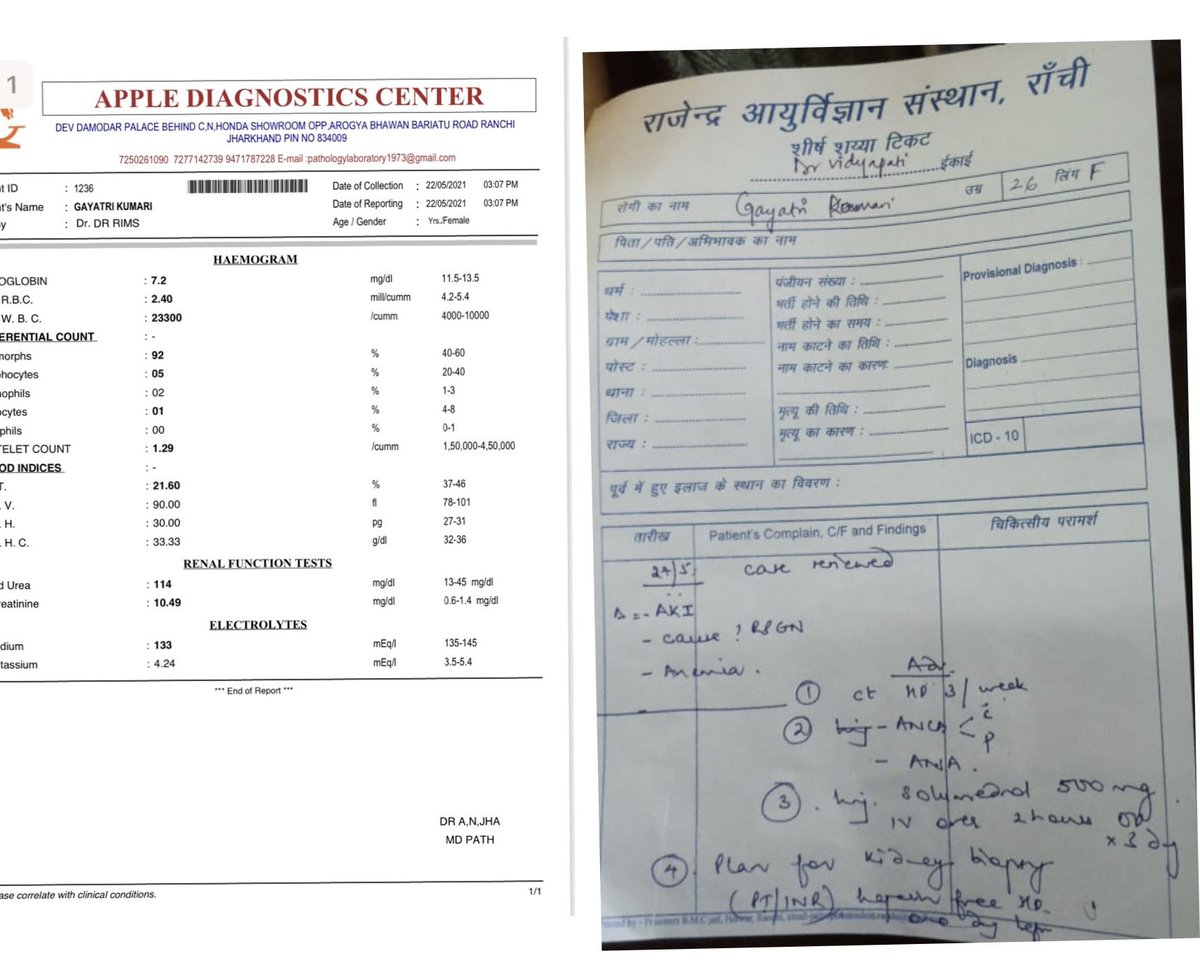 1
APPLE DIAGNOSTICS CENTER
DEV DAMODAR PALACE BEHIND C,N,HONDA SHOWROOM OPP,AROGYA BHAWAN BARIATU ROAD RANCHI
JHARKHAND PIN NO 834009
7250261090 7277142739 9471787228 E-mail :pathologylaboratory1973@gmail.com
nt ID : 1236 Date of Collection : 22/05/2021 03:07 PM
nt's Name : GAYATRI KUMARI Date of Reporting : 22/05/2021 03:07 PM
y : Dr. DR RIMS Age / Gender : Yrs.Female
HAEMOGRAM
OGLOBIN : 7.2 mg/dl 11.5-13.5
R.B.C. : 2.40 mill/cumm 4.2-5.4
W. B. C. : 23300 /cumm 4000-10000
ERENTIAL COUNT : -
morphs : 92 % 40-60
phocytes : 05 % 20-40
nophils : 02 % 1-3
ocytes : 01 % 4-8
phils : 00 % 0-1
TELET COUNT : 1.29 /cumm 1,50,000-4,50,000
OD INDICES : -
T. : 21.60 % 37-46
. V. : 90.00 fl 78-101
. H. : 30.00 pg 27-31
. H. C. : 33.33 g/dl 32-36
RENAL FUNCTION TESTS
d Urea : 114 mg/dl 13-45 mg/dl
reatinine : 10.49 mg/dl 0.6-1.4 mg/dl
ELECTROLYTES
dium : 133 mEq/l 135-145
tassium : 4.24 mEq/l 3.5-5.4
*** End of Report ***
DR A,N,JHA
MD PATH
ase correlate with clinical conditions. 1/1
राजेन्द्र आयुर्विज्ञान संस्थान, राँची
शीर्ष शय्या टिकट
Dr Vidyapati इकाई
रोगी का नाम Gayatri Kumari उम्र 26 लिंग F
पिता/पति/अभिभावक का नाम
धर्म : पंजीयन संख्या : Provisional Diagnosis :
पेशा : भर्ती होने की तिथि :
ग्राम/मोहल्ला : भर्ती होने का समय :
पोस्ट : नाम काटने का तिथि : Diagnosis
थाना : नाम काटने का कारण:
जिला : मृत्यू की तिथि :
राज्य : मृत्यू का कारण : ICD - 10
पूर्व में हुए इलाज के स्थान का विवरण :
तारीख Patient's Complain, C/F and Findings चिकित्सीय परामर्श
24/5 case reviewed
AKI
- cause ? RPGN
- Anemia.
Adv.
① ct HD 3/week
② - ANCA < c
p
- ANA.
③ . Inj. Solumedrol 500 mg
IV over 2 hours OD
x 3 day
④. Plan for kidney biopsy
(PT/INR) heparin free HD.
one day